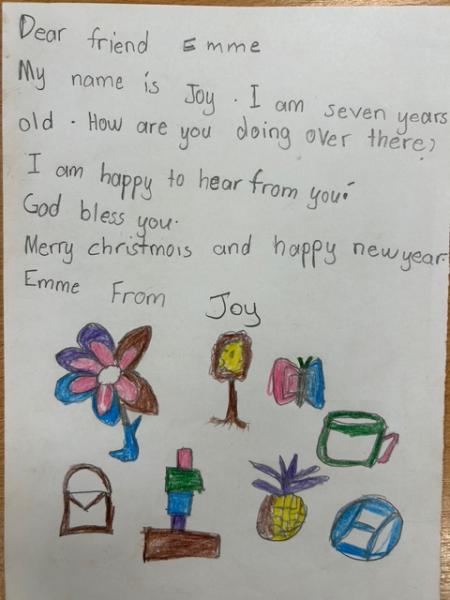 Dear friend Emme
My name is Joy. I am seven years
old. How are you doing over there?
I am happy to hear from you!
God bless you.
Merry christmois and happy newyear.
Emme From Joy